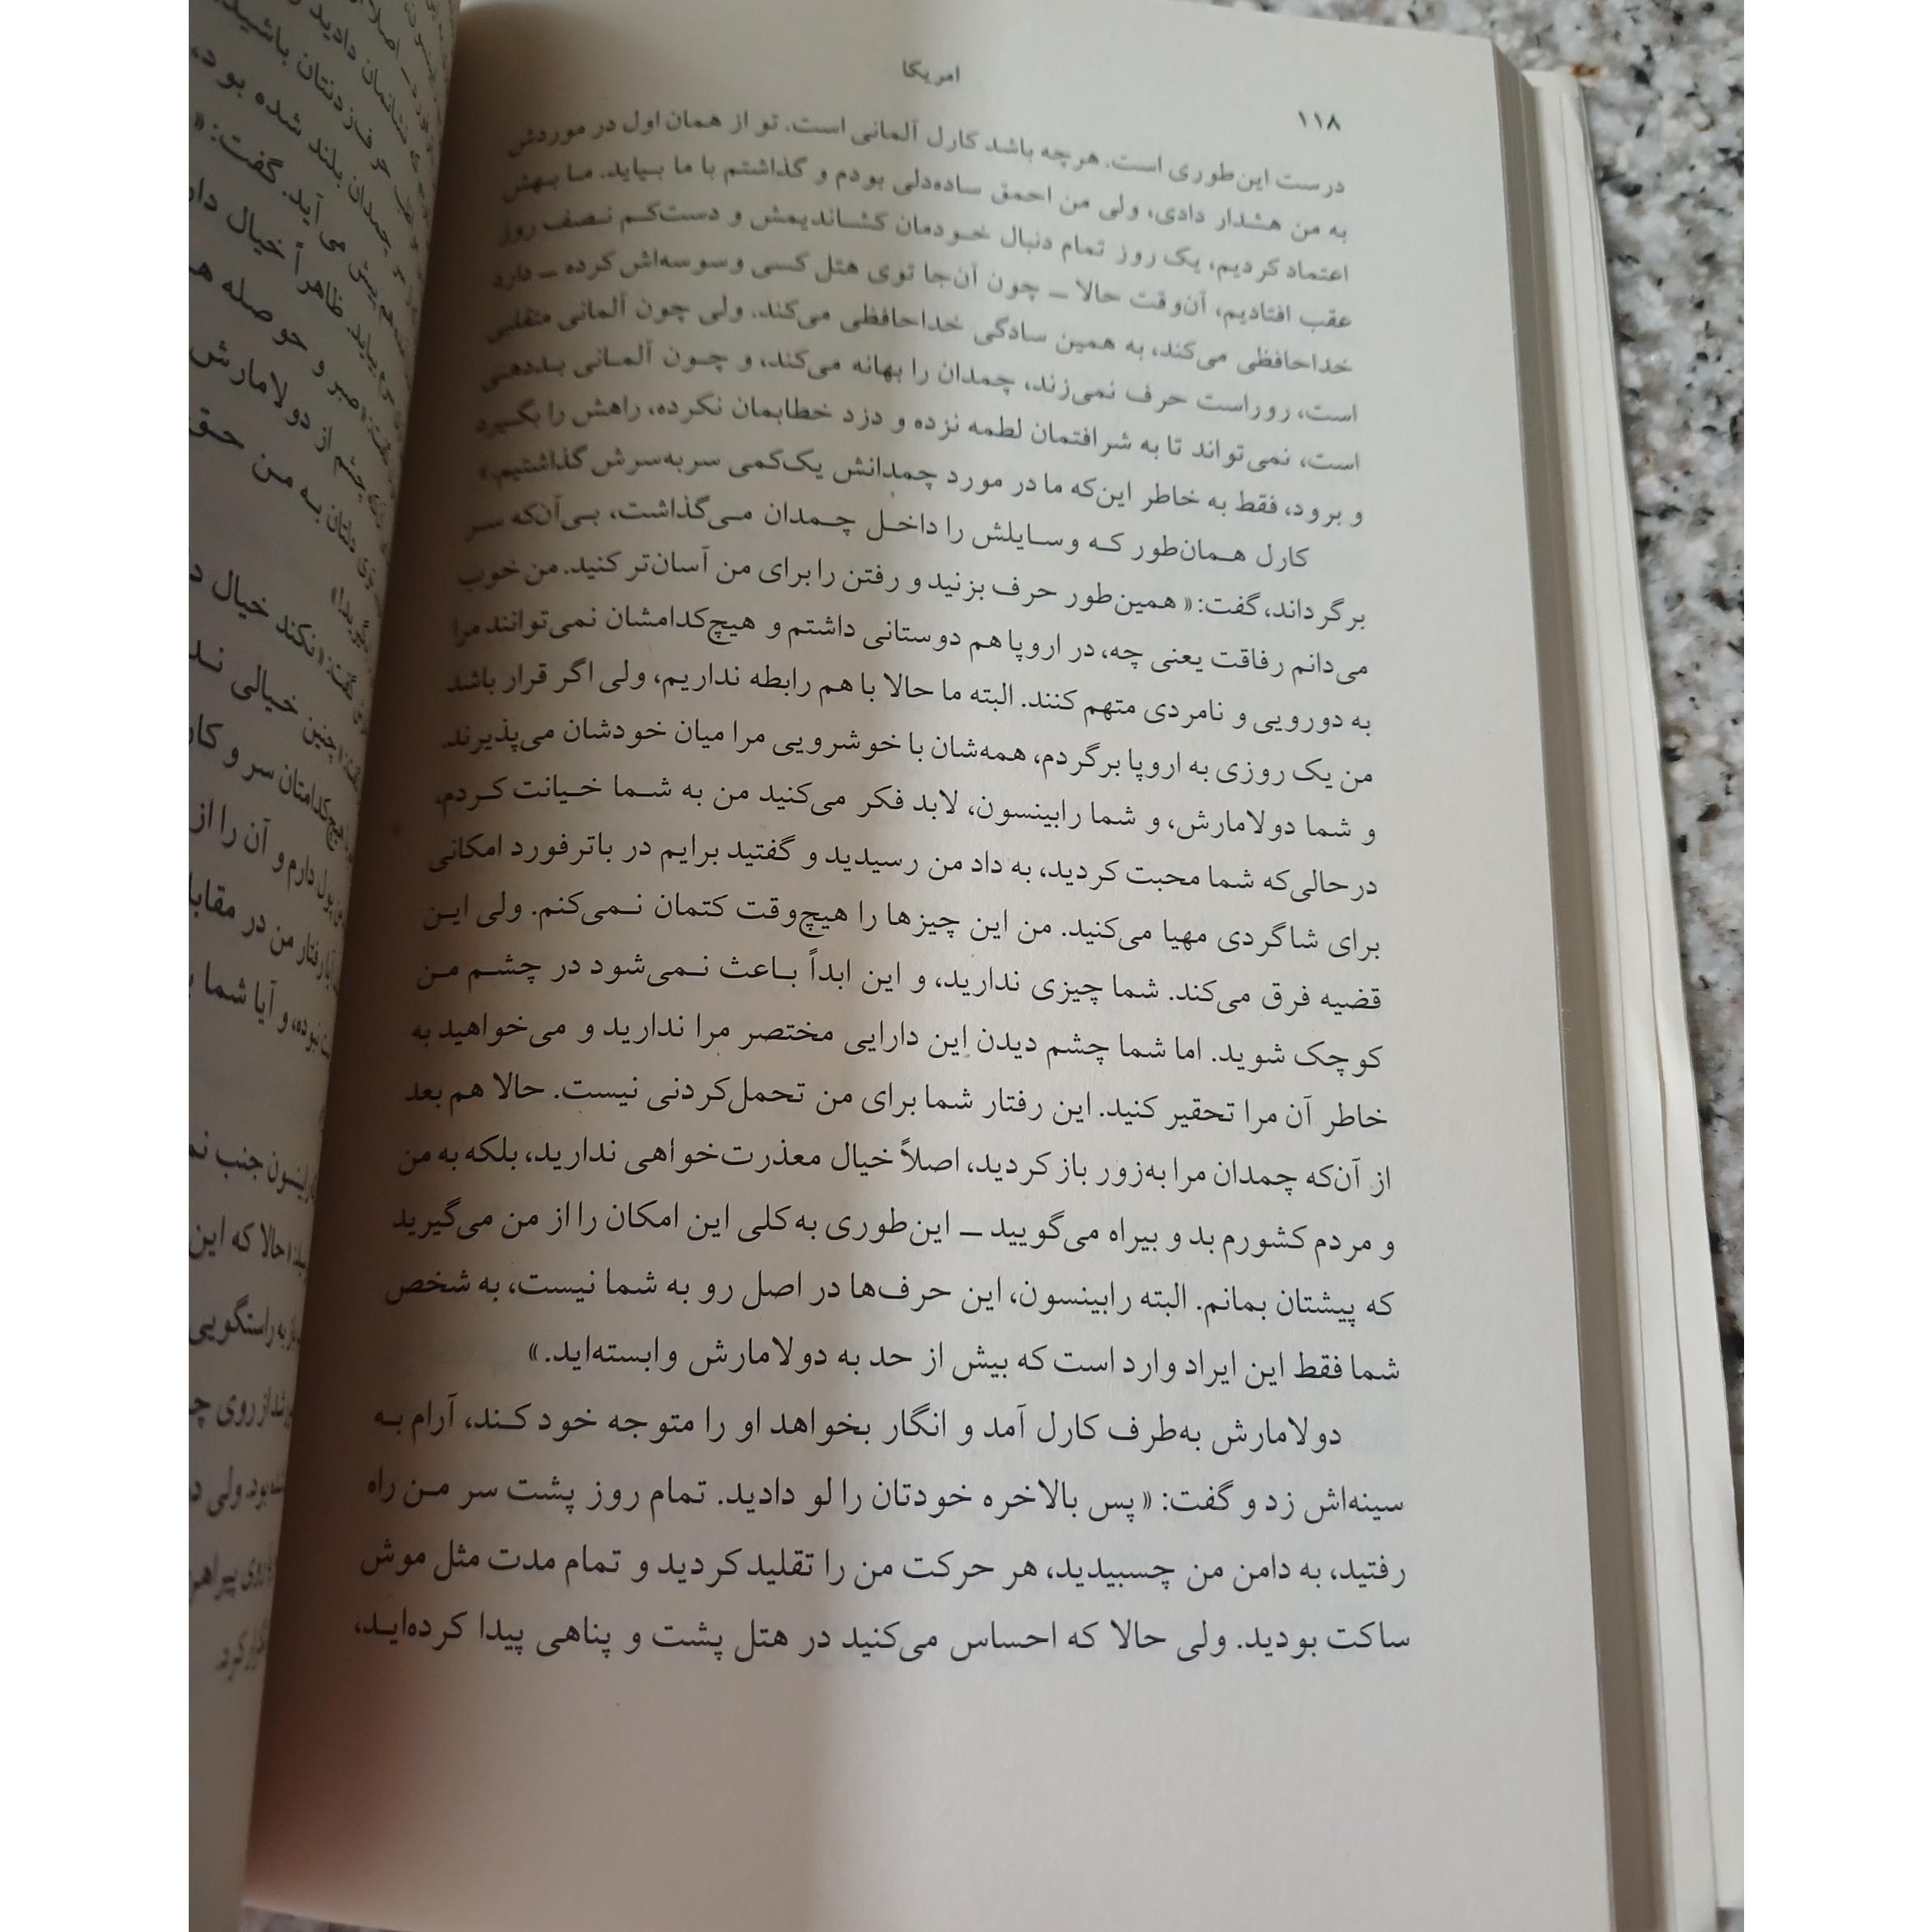 امریکا
۱۱۸
درست این‌طوری است. هرچه باشد کارل آلمانی است. تو از همان اول در موردش
به من هشدار دادی، ولی من احمق ساده‌دلی بودم و گذاشتم با ما بیاید. ما بهش
اعتماد کردیم، یک روز تمام دنبال خودمان کشاندیمش و دست‌کم نصف روز
عقب افتادیم، آن‌وقت حالا ــ چون آن‌جا توی هتل کسی وسوسه‌اش کرده ــ دارد
خداحافظی می‌کند، به همین سادگی خداحافظی می‌کند. ولی چون آلمانی متقلبی
است، روراست حرف نمی‌زند، چمدان را بهانه می‌کند، و چون آلمانی بددهنی
است، نمی‌تواند تا به شرافتمان لطمه نزده و دزد خطابمان نکرده، راهش را بگیرد
و برود، فقط به خاطر این‌که ما در مورد چمدانش یک‌کمی سربه‌سرش گذاشتیم.»
کارل همان‌طور که وسایلش را داخل چمدان می‌گذاشت، بی‌آن‌که سر
برگرداند، گفت: «همین‌طور حرف بزنید و رفتن را برای من آسان‌تر کنید. من خوب
می‌دانم رفاقت یعنی چه، در اروپا هم دوستانی داشتم و هیچ‌کدامشان نمی‌توانند مرا
به دورویی و نامردی متهم کنند. البته ما حالا با هم رابطه نداریم، ولی اگر قرار باشد
من یک روزی به اروپا برگردم، همه‌شان با خوشرویی مرا میان خودشان می‌پذیرند.
و شما دولامارش، و شما رابینسون، لابد فکر می‌کنید من به شما خیانت کردم،
درحالی‌که شما محبت کردید، به داد من رسیدید و گفتید برایم در باترفورد امکانی
برای شاگردی مهیا می‌کنید. من این چیزها را هیچ‌وقت کتمان نمی‌کنم. ولی این
قضیه فرق می‌کند. شما چیزی ندارید، و این ابداً باعث نمی‌شود در چشم من
کوچک شوید. اما شما چشم دیدن این دارایی مختصر مرا ندارید و می‌خواهید به
خاطر آن مرا تحقیر کنید. این رفتار شما برای من تحمل‌کردنی نیست. حالا هم بعد
از آن‌که چمدان مرا به‌زور باز کردید، اصلاً خیال معذرت‌خواهی ندارید، بلکه به من
و مردم کشورم بد و بیراه می‌گویید ــ این‌طوری به‌کلی این امکان را از من می‌گیرید
که پیشتان بمانم. البته رابینسون، این حرف‌ها در اصل رو به شما نیست، به شخص
شما فقط این ایراد وارد است که بیش از حد به دولامارش وابسته‌اید.»
دولامارش به‌طرف کارل آمد و انگار بخواهد او را متوجه خود کند، آرام به
سینه‌اش زد و گفت: «پس بالاخره خودتان را لو دادید. تمام روز پشت سر من راه
رفتید، به دامن من چسبیدید، هر حرکت من را تقلید کردید و تمام مدت مثل موش
ساکت بودید. ولی حالا که احساس می‌کنید در هتل پشت و پناهی پیدا کرده‌اید،